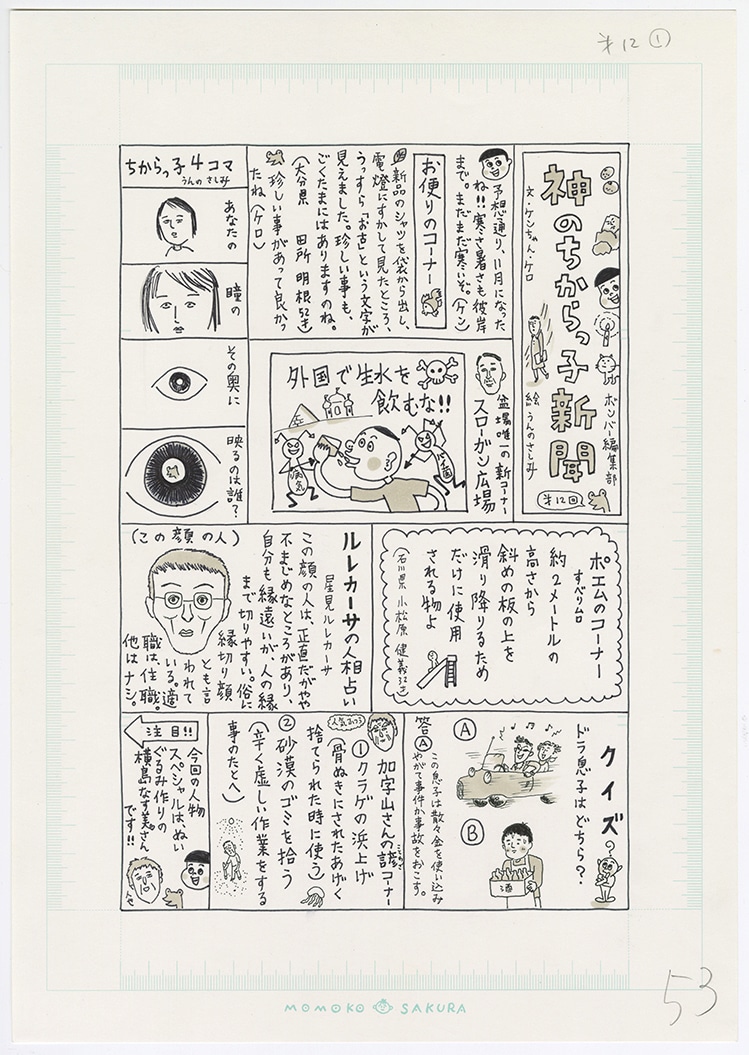 㐧12 ①
神のちからっ子新聞
文・ケンちゃん・ケロ
ボンバー編集部
絵 うんのさしみ
㐧12回
予想通り、11月になった
ね!!寒さ暑さも彼岸
まで。まだまだ寒いぞ。(ケン)
お便りのコーナー
新品のシャツを袋から出し、
電燈にすかして見たところ、
うっすら「お古」という文字が
見えました。珍しい事も、
ごくたまにはありますのね。
(大分県 田所明根 52才)
珍しい事があって良かっ
たね(ケロ)
ちからっ子4コマ
うんのさしみ
あなたの
瞳の
その奥に
映るのは誰?
盆場唯一の新コーナー
スローガン広場
外国で生水を
飲むな!!
病気
バイ菌
ポエムのコーナー
すべりム台
約2メートルの
高さから
斜めの板の上を
滑り降りるため
だけに使用
される物よ
(石川県 小松原 健義 32才)
ルレカーサの人相占い
星見ルレカーサ
(この顔の人)
この顔の人は、正直だがやや
不まじめなところがあり、
自分も縁遠いが、人の縁
まで切りやすい。俗に
縁切り顔
とも言
われて
いる。適
職は、住職。
他はナシ。
クイズ
ドラ息子はどちら?
Ⓐ
Ⓑ
酒
答Ⓐ
この息子は散々金を使い込み
やがて事件か事故をおこす。
人気おつう
加字山さんの諺コーナー
ことわざ
①クラゲの浜上げ
(骨ぬきにされたあげく
捨てられた時に使う)
②砂漠のゴミを拾う
(辛く虚しい作業をする
事のたとへ)
注目!!
今回の人物
スペシャルはぬい
ぐるみ作りの
横島なす美さん
です!!
53
MOMOKO SAKURA